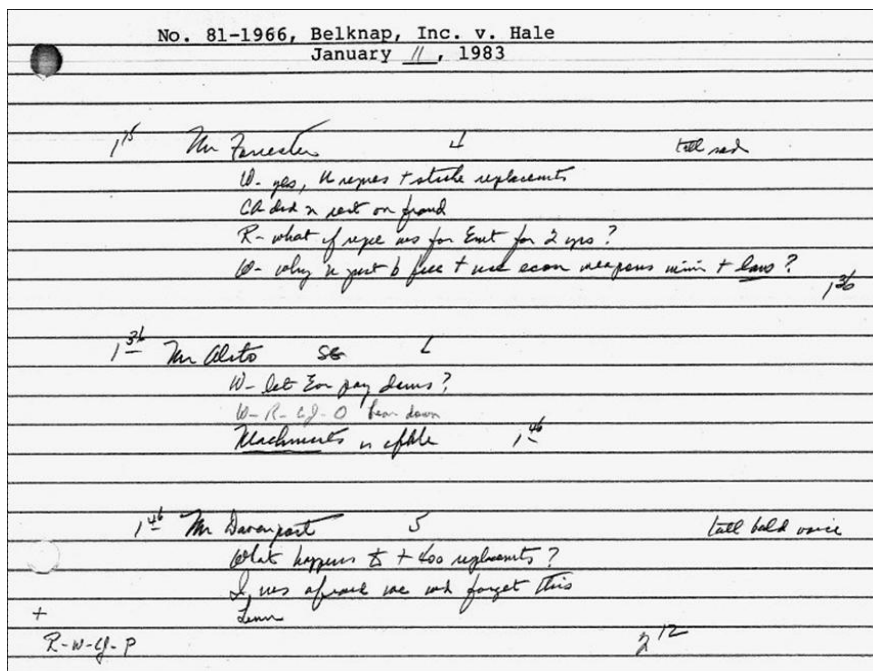 No. 81-1966, Belknap, Inc. v. Hale
January 11, 1983
1 15 Mr Forrester 4 tall red
W- yes, n + strike replacemts
CA did n rest on fraud
R- what if repl was for Emt for 2 yrs ?
W- why n just b free + use econ weapons + laws ?
1 36
1 36 Mr Alito SG L
W- let Eor pay dams ?
W-R-CJ-O bear down
Machinists n
1 46
1 46 Mr Davenport 5 tall bald voice
What happens to + 400 replacemts ?
I was afraid we wd forget this
+
R-W-CJ-P
2 12